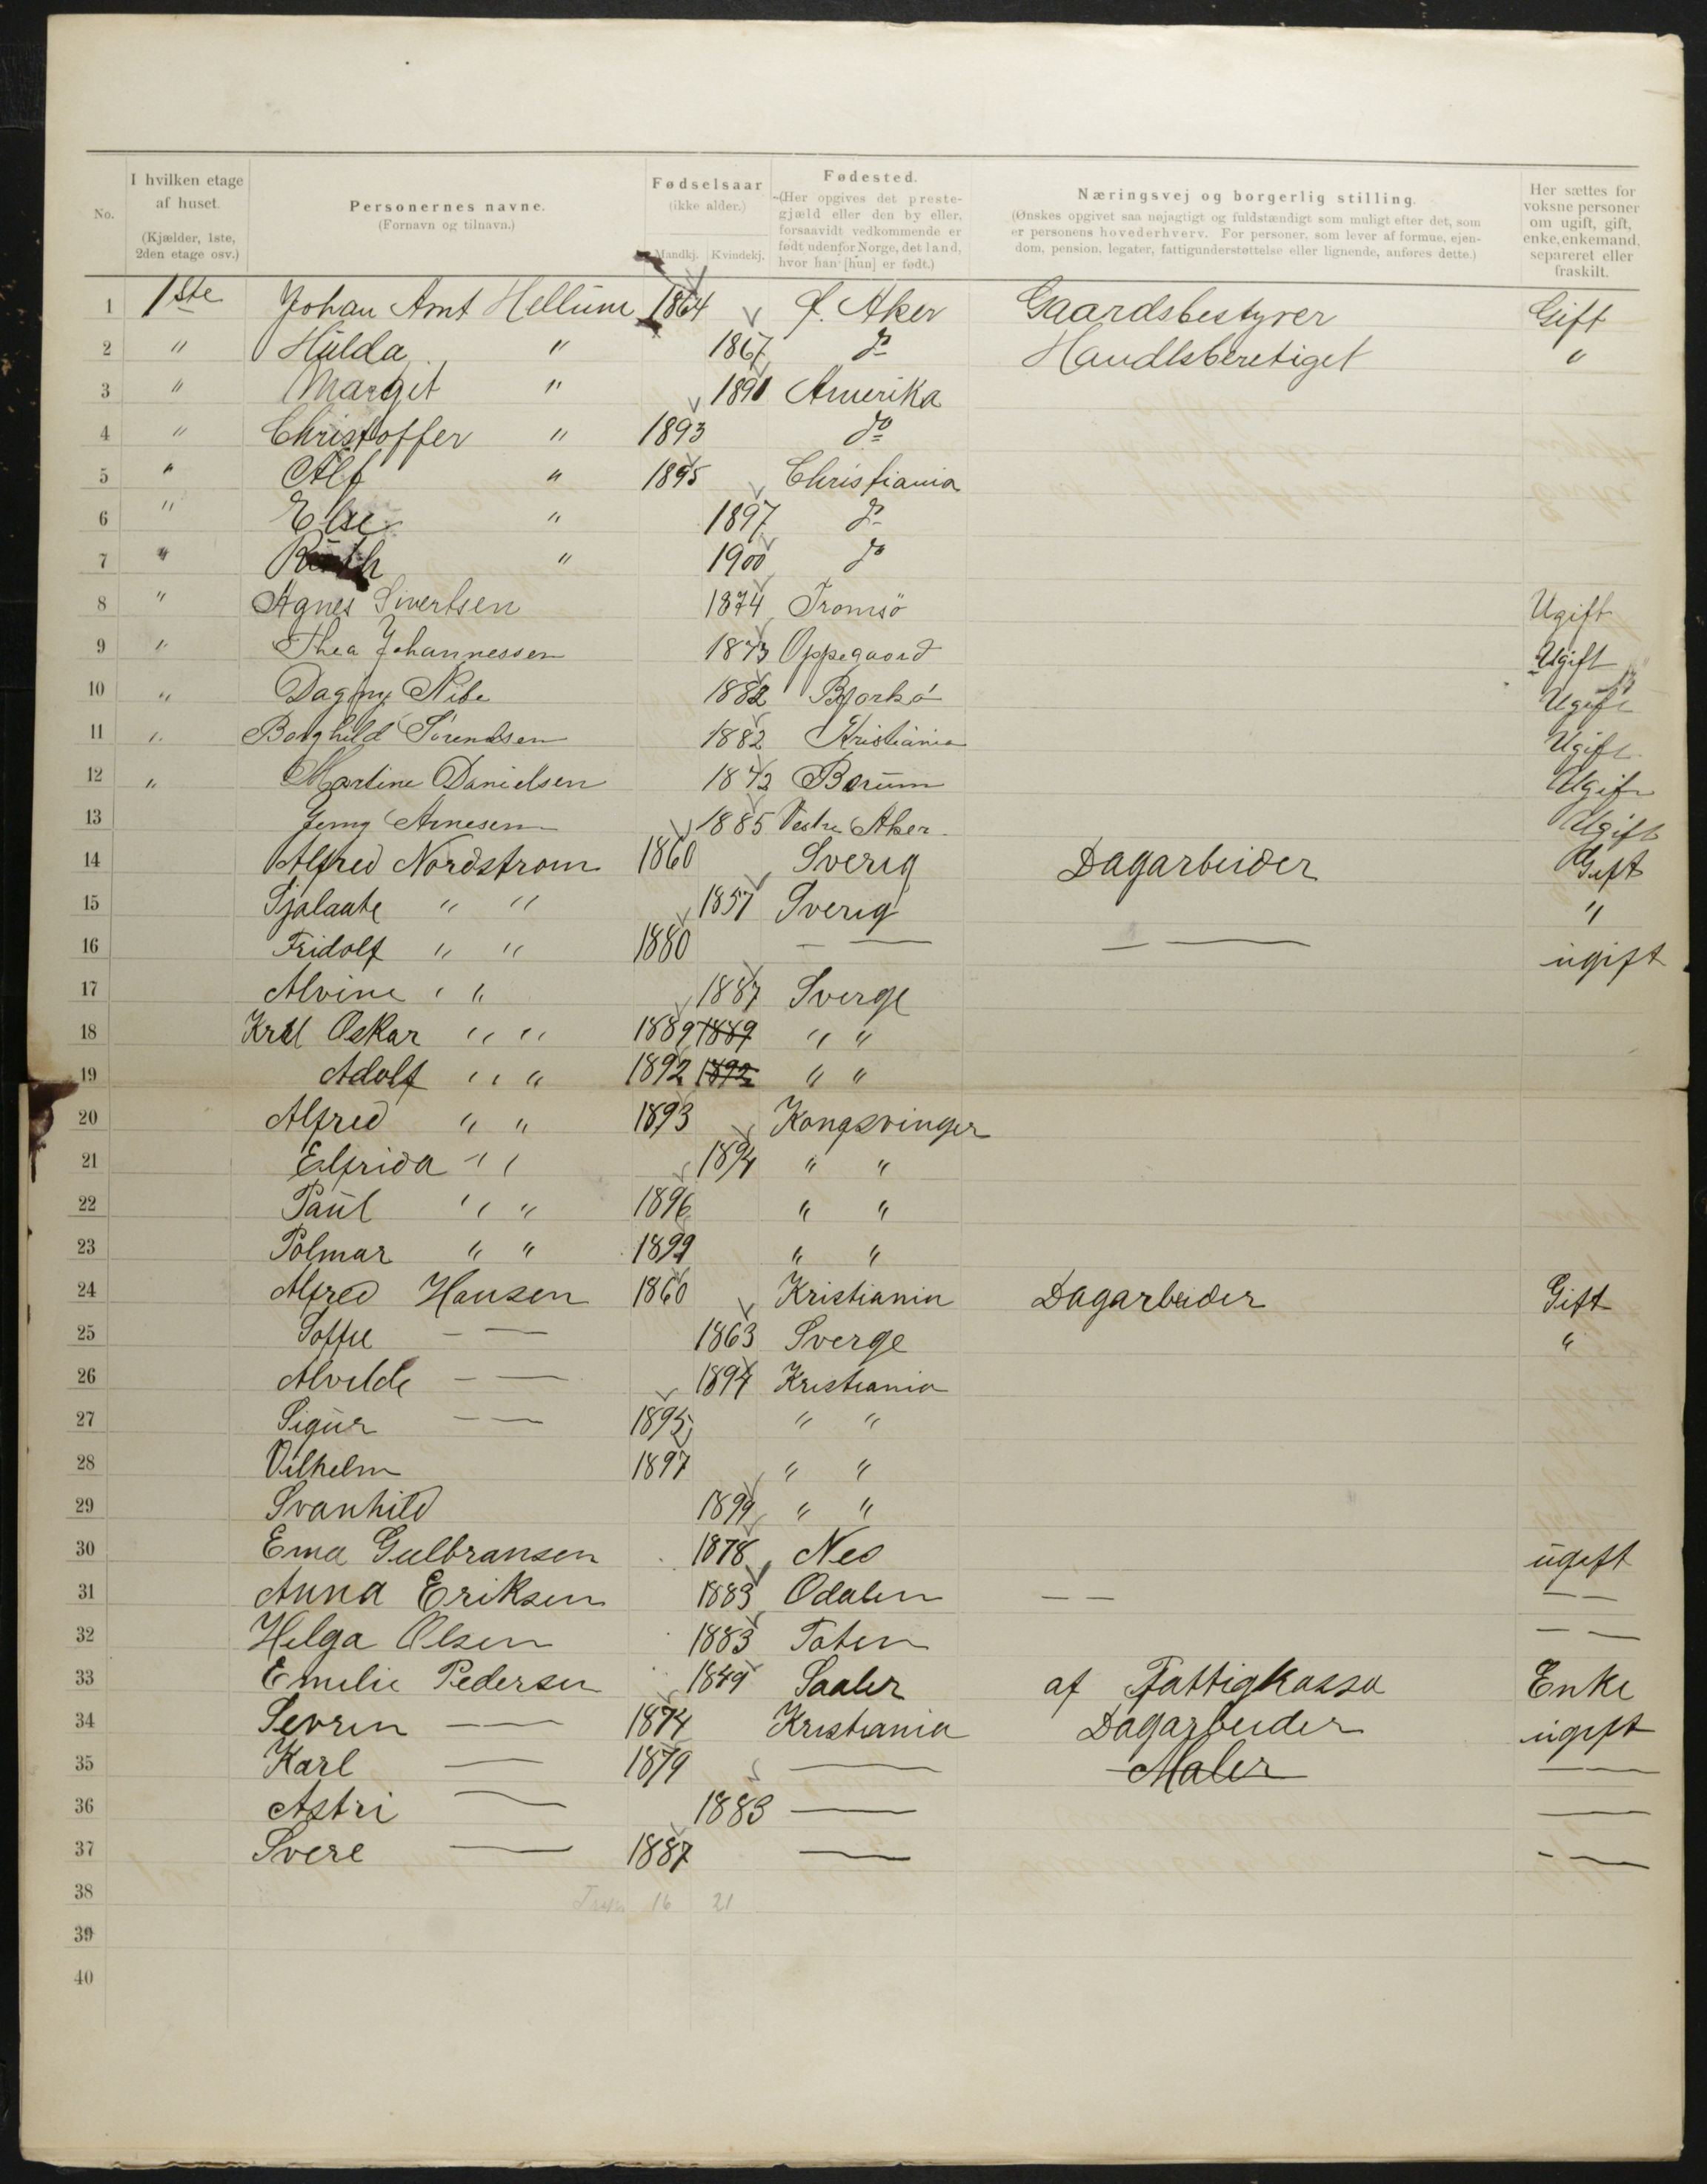 No.
I hvilken etage af huset. (Kjælder, 1ste, 2den etage osv.)
Personernes navne. (Fornavn og tilnavn.)
Fødselsaar (ikke alder.) Mandkj. Kvindekj.
Fødested. (Her opgives det prestegjæld eller den by eller, forsaavidt vedkommende er født udenfor Norge, det land, hvor han [hun] er født.)
Næringsvej og borgerlig stilling. (Ønskes opgivet saa nøjagtigt og fuldstændigt som muligt efter det, som er personens hovederhverv. For personer, som lever af formue, ejendom, pension, legater, fattigunderstøttelse eller lignende, anføres dette.)
Her sættes for voksne personer om ugift, gift, enke, enkemand, separeret eller fraskilt.
1 1ste Johan Arnt Hellum 1864 Aker Gaardsbestyrer Gift
2 " Hulda " 1867 do Handlsberetiget "
3 " Margit " 1891 Amerika
4 " Christoffer " 1893 do
5 " Alf " 1895 Christiania
6 " Else " 1897 do
7 " Ruth " 1900 do
8 " Agnes Sivertsen 1874 Tromsö Ugift
9 " Thea Johannessen 1873 Oppegaard Ugift
10 " Dagny Nibe 1882 Bjorkö Ugift
11 " Borghild Sörensen 1882 Kristiania Ugift
12 " Martine Danielsen 1872 Bærum Ugift
13 Jenny Arnesen 1885 Vestre Aker Ugift
14 Alfred Nordstrom 1860 Sverig Dagarbeider Gift
15 Sjalaate " " 1857 Sverig "
16 Fridolf " " 1880 — — — — ugift
17 Alvine " " 1887 Sverge
18 Oskar " " 1889 1889 " "
19 Adolf " " 1892 1892 " "
20 Alfred " " 1893 Kongsvinger
21 Elfrida " " 1894 " "
22 Paul " " 1896 " "
23 Polmar " " 1899 " "
24 Alfred Hansen 1860 Kristiania Dagarbeider Gift
25 Soffie — — 1863 Sverge "
26 Alvilde — — 1894 Kristiania
27 Sigur — — 1895 " "
28 Vilhelm 1897 " "
29 Svanhild 1899 " "
30 Ema Gulbransen 1878 Nes ugift
31 Anna Eriksen 1883 Odalen — — — —
32 Helga Olsen 1883 Toten — —
33 Emilie Pedersen 1849 Saaler af Fattigkassa Enke
34 Sevrin — — 1874 Kristiania Dagarbeider ugift
35 Karl — 1879 — Maler — —
36 Astri — 1883 — —
37 Svere — 1887 — — —
38 16 21
39
40